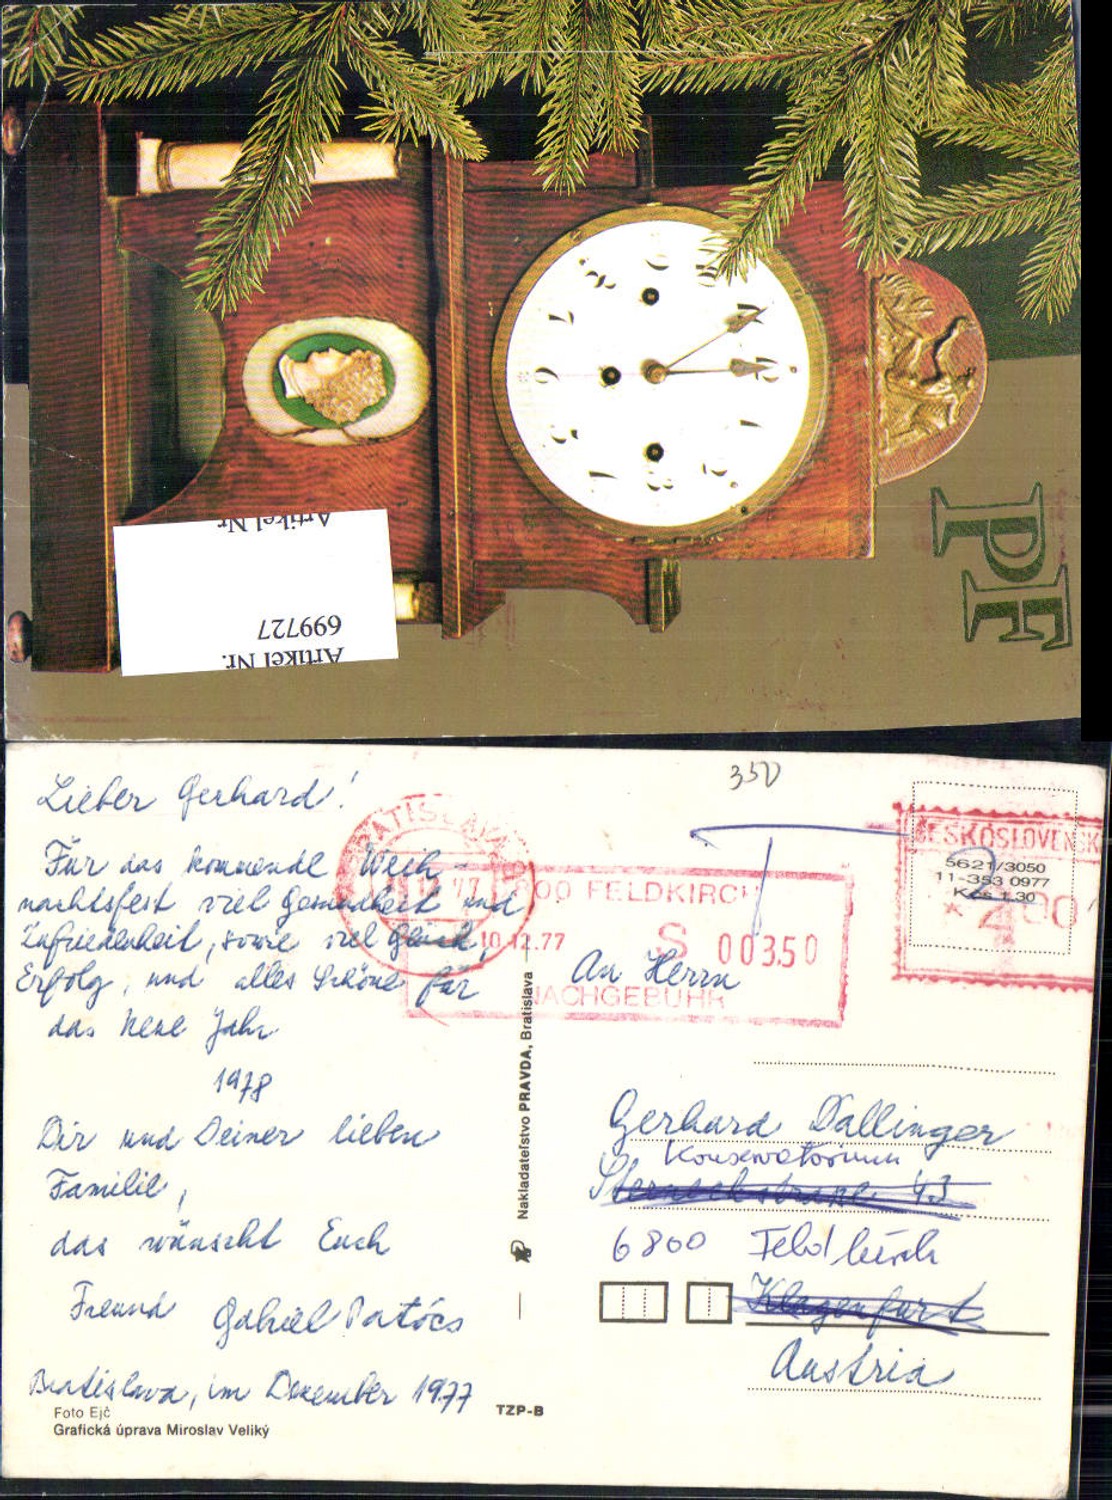 PF
Artikel Nr.
699727
Artikel Nr.
Lieber Gerhard!
Für das kommende Weih-
nachtsfest viel Gesundheit und
Zufriedenheit, sowie viel Glück,
Erfolg, und alles Schöne für
das Neue Jahr
1978
Dir und Deiner lieben
Familie,
das wünscht Euch
Freund Gabriel Patócs
Bratislava, im Dezember 1977
Foto Ejč
Grafická úprava Miroslav Veliký
TZP-B
Nakladateľstvo PRAVDA, Bratislava
350
T
BRATISLAVA
12.77
6800 FELDKIRCH
10.12.77
S 00350
NACHGEBÜHR
ČESKOSLOVENSK
5621/3050
11-353 0977
Kčs 1,30
*400
An Herrn
Gerhard Dallinger
Konservatorium
43
6800 Feldkirch
Klagenfurt
Austria